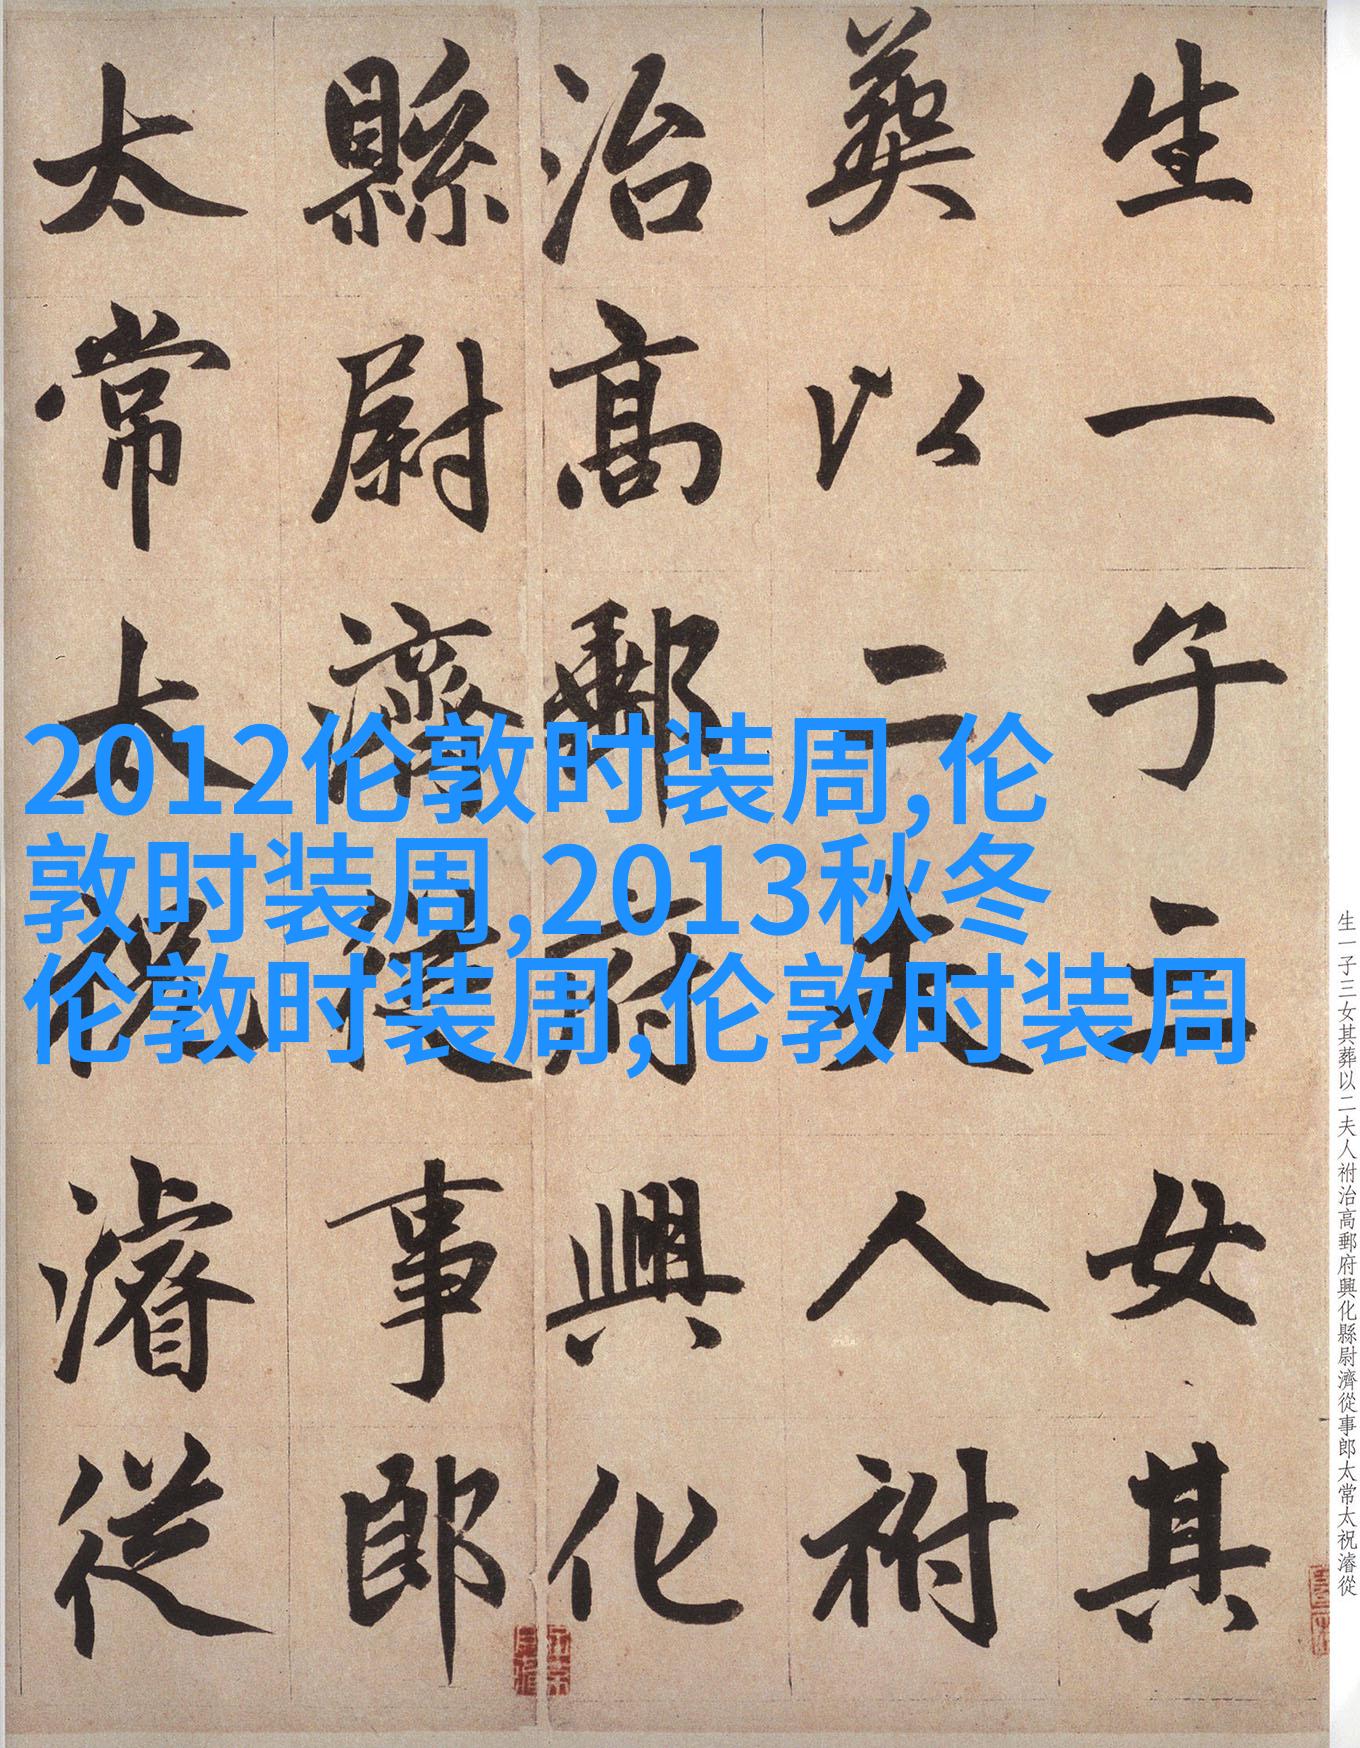 生一子三女其
葬以二夫人祔
治高郵府興化
縣尉濟從事郎
太常太祝濬從
2012伦敦时装周,伦
敦时装周,2013秋冬
伦敦时装周,伦敦时装周
生一子三女其葬以二夫人祔治高郵府興化縣尉濟從事郎太常太祝濬從